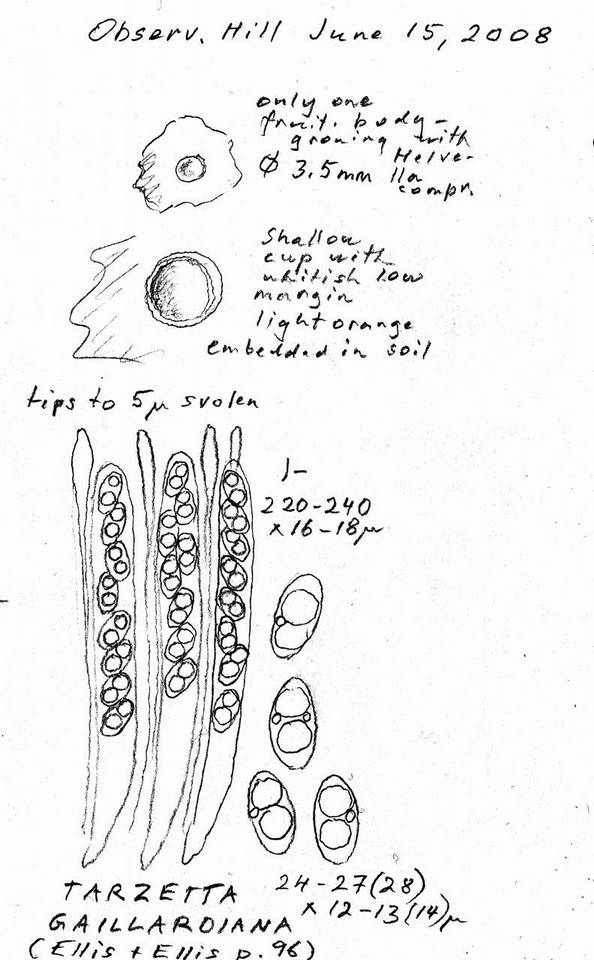 Observ. Hill June 15, 2008
only one
fruit. body-
growing with
Helve-
Ø 3.5mm lla
compr.
Shallow
cup with
whitish low
margin
light orange
embedded in soil
tips to 5µ svolen
J-
220-240
x 16-18µ
24-27(28)
x 12-13(14)µ
TARZETTA
GAILLARDIANA
(Ellis + Ellis p. 96)